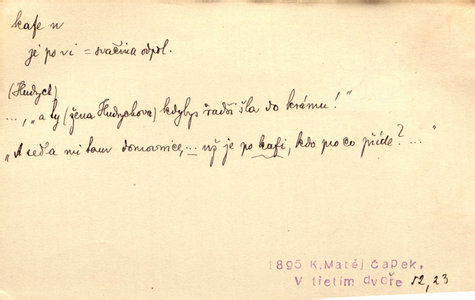 kafe n
je po vi = svačina odpol.
(Hudycl)
..., „a ty (žena Hudyclova) kdybys radši šla do krámu!"
„A sedla mi tam domovnice, ... už je po kafi, kdo pro co přijde? ..."
1895 K. Matěj Čapek,
V třetím dvoře 12, 23